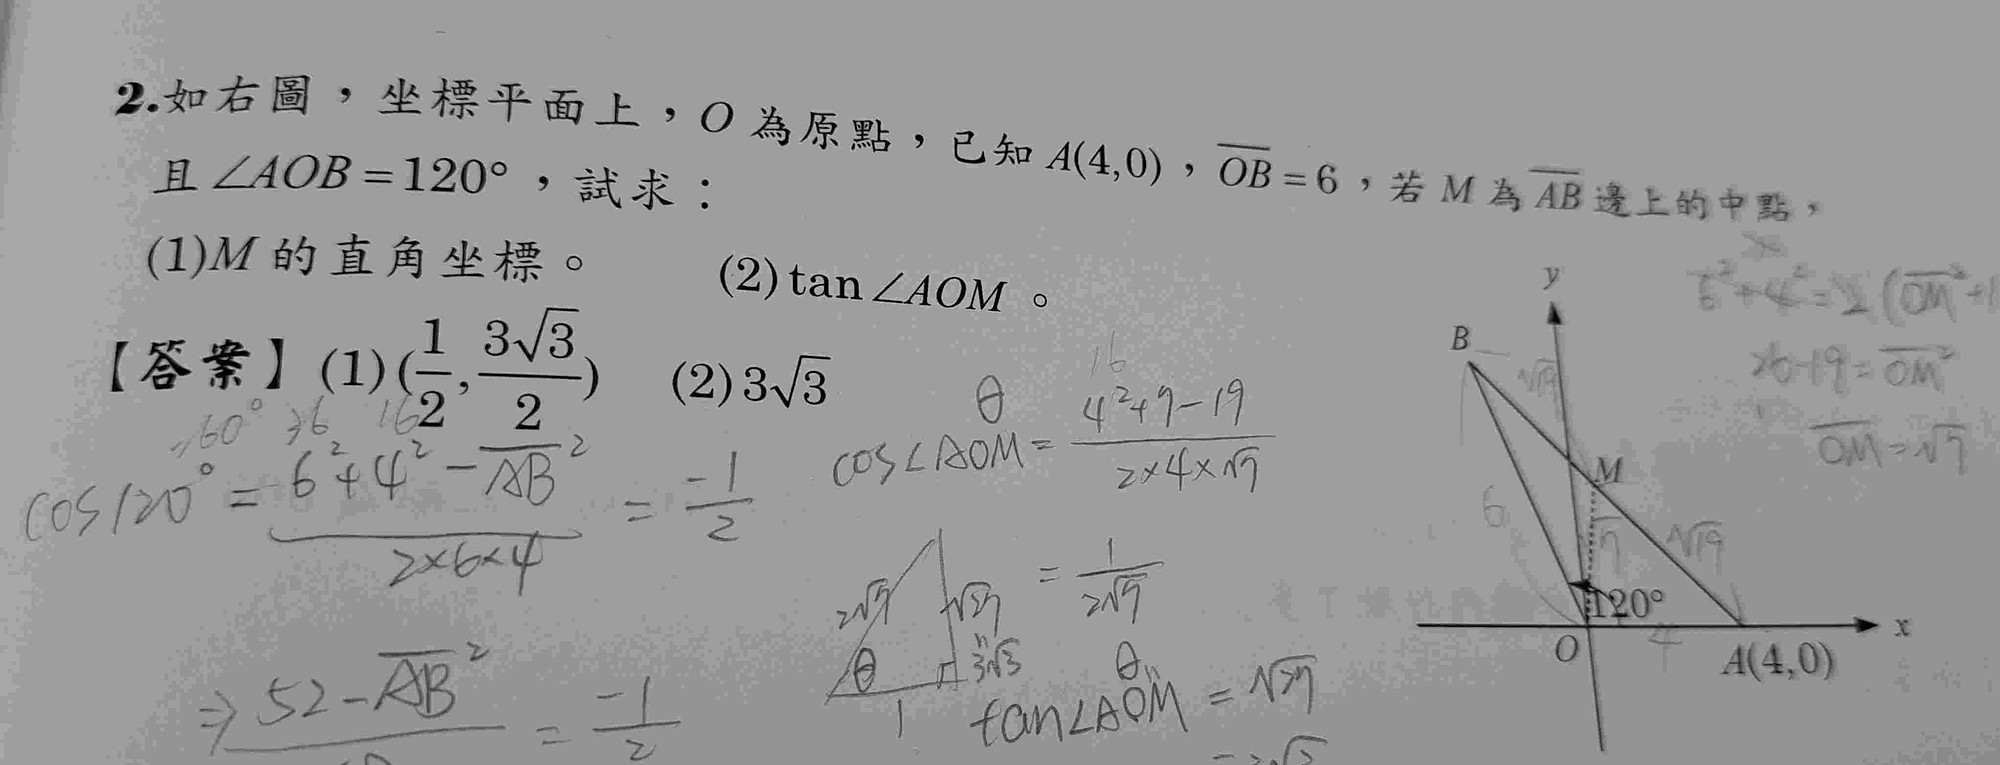 2.如右圖，坐標平面上，O 為原點，已知 A(4,0)，\overline{OB}=6，若 M 為 \overline{AB} 邊上的中點，
且 ∠AOB=120°，試求：
(1)M 的直角坐標。 (2)tan∠AOM。
【答案】(1)(\frac{1}{2},\frac{3\sqrt{3}}{2}) (2)3√3
60° 36 16
cos120° = \frac{6²+4²-\overline{AB}²}{2×6×4} = \frac{-1}{2}
⇒ \frac{52-\overline{AB}²}{} = \frac{-1}{2}
16
θ
cos∠AOM = \frac{4²+7-19}{2×4×√7}
= \frac{1}{2√7}
2√7 √27
"
θ 3√3
1
θ
"
tan∠AOM = √27
=3√3
6²+4²=2(\overline{OM}²+
26-19=\overline{OM}²
\overline{OM}=√7
y
B
√19
M
6
√7 √19
120°
O 4 x
A(4,0)